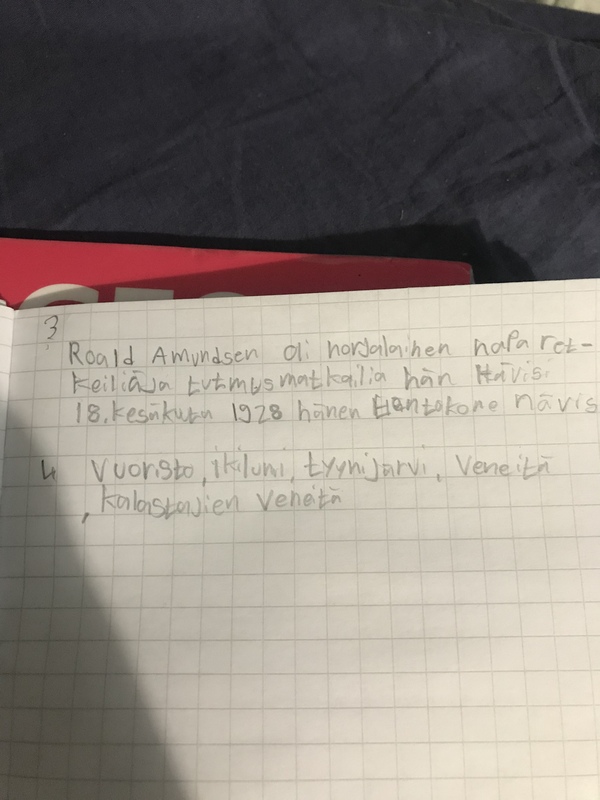 3
Roald Amundsen oli norjalainen napa ret-
keiliäja tutmusmatkailia hän Hävisi
18.kesäkutu 1928 hänen Hentokone hävis
4 Vuoristo, ikiluni, tyynijärvi, Veneitä
, kalastajien Veneitä